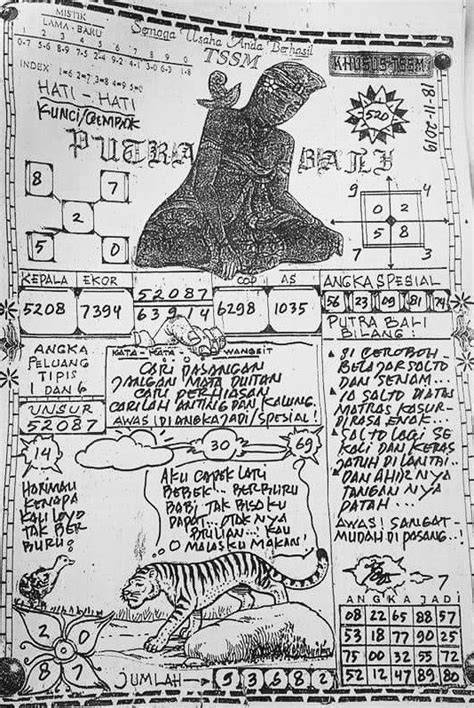 MISTIK
LAMA - BAKU
0 1 2 3 4 5 6 7 8 9
Semoga Usaha Anda Berhasil
TSSM
INDEX 1=6 2=7 3=8 4=9 5=0
HATI - HATI
KHUSUS TSSM
520
18-11-2019
PUTRA BALI
8 7
2
5 0
9 4
0 2
5 8
7 3
KEPALA EKOR
5208 7394
52087
63914
COP AS
6298 1035
ANGKA SPESIAL
56 23 09 81 74
ANGKA
PELUANG
TIPIS
1 DAN 6
UNSUR
52087
KATA - KATA WANGSIT
CARI PASANGAN
JANGAN MATA DUITAN
CARI PERHIASAN
CARILAH ANTING DAN KALUNG.
AWAS! DI ANGKA JADI/SPESIAL!
PUTRA BALI
BILANG:
SI CEROBOH
BELAJAR SALTO
DAN SENAM...
SALTO DIATAS
MATRAS KASUR
DIRASA ENAK...
SALTO LAGI SE
KALI DAN KERAS
JATUH DI LANTAI..
DAN AHIRNYA
TANGAN NYA
PATAH...
AWAS! SANGAT
MUDAH DI PASANG..!
14
30
69
HARIMAU
KENAPA
KAU LOYO
TAK BER
BURU?
AKU CAPEK LARI
BEBEK.. BERBURU
BABI TAK BISA KU
DAPAT... OTAK NYA
BRILIAN..! KAU
MALAS KU MAKAN!
2 0
8 7
JUMLAH → 5 3 6 8 2
7
ANGKA JADI
08 22 65 88 57
53 18 77 90 25
75 00 32 55 72
52 12 47 89 80